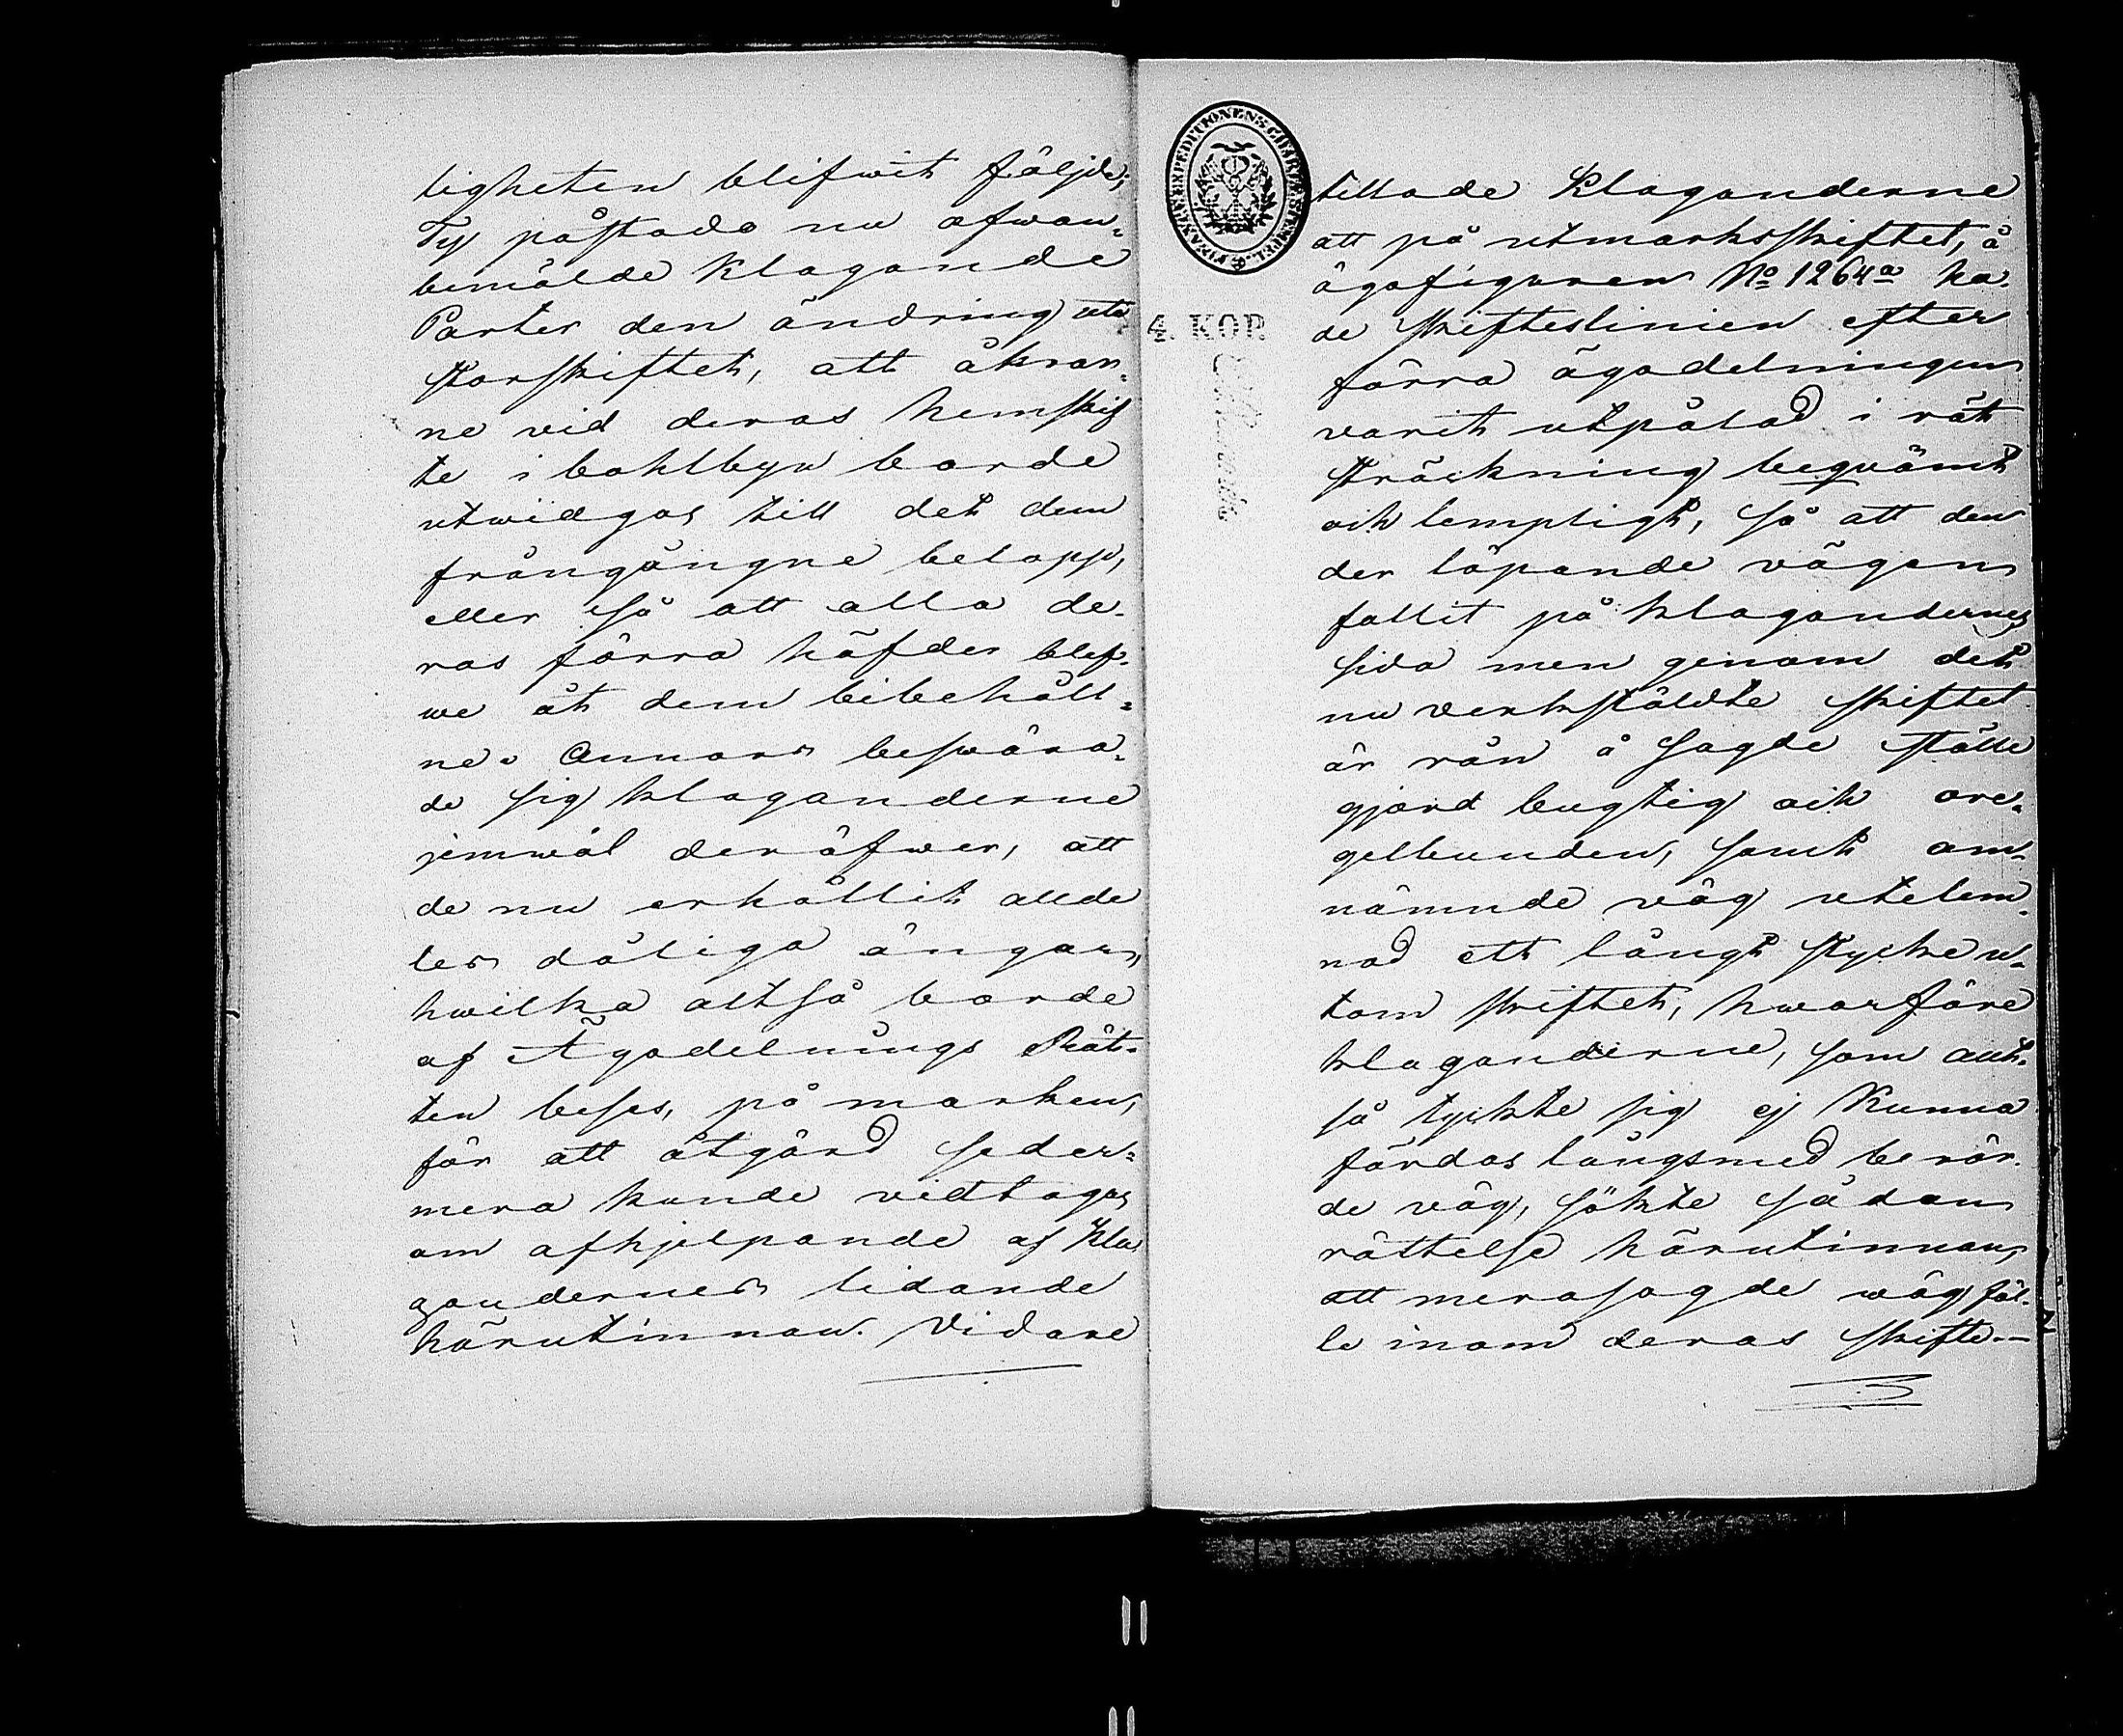 ligheten blifwit följde;
Ty påstodo nu ofwan-
bemälde Klagande
Parter den ändring uti
storskiftet, att åkrar-
ne vid deras hemskif
te i bohlbyn borde
utwidgas till det dem
frångångne belopp,
eller så att alla de-
ras förra häfder blef-
we åt dem bibehåll-
ne. Annars beswära-
de sig klaganderne
jemwäl deröfwer, att
de nu erhållit allde
les dåliga ängar,
hwilka altså borde
af Ägodelnings Rät-
ten beses, på marken,
för att åtgärd seder-
mera kunde vidtagas
om afhjelpande af Kla
gandernes lidande
härutinnan. Vidare
FINANS EXPEDITIONENS CHARTÆ STEMPEL.
4. KOP.
tillade Klaganderne
att på utmarksskiftet, å
ägofiguren No 1264a ha-
de skifteslinien efter
förra ägodelningen
varit utpålad i rät
sträckning beqvämt
och lempligt, så att den
der löpande vägen
fallit på klagandernes
sida men genom det
nu verkstäldte skiftet
är rån å sagde ställe
gjord bugtig och ore-
gelbunden, samt om-
nämnde väg utelem-
nad ett långt stycke u-
tom skiftet, hwarföre
klaganderne, som allt-
så tyckte sig ej Kunna
färdas långsmed berör-
de väg, sökte sådan
rättelse härutinnan,
att merasagde wäg föl-
le inom deras skifte.—